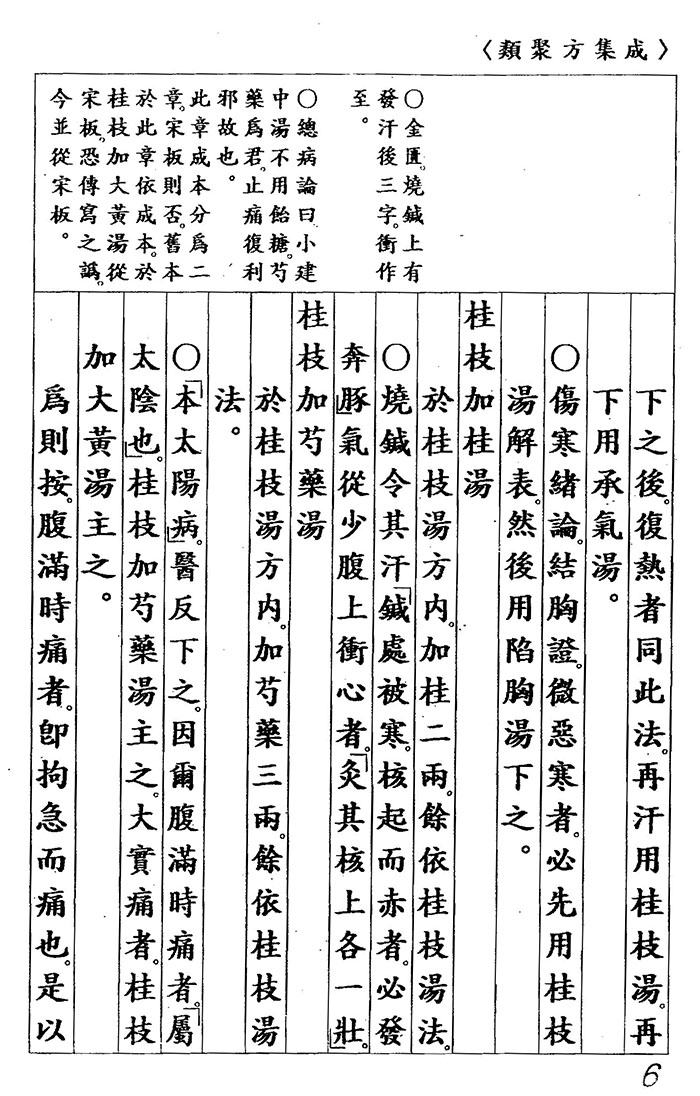 〈類聚方集成〉
○金匱。燒鍼上有
發汗後三字。衝作
至。
○總病論曰小建
中湯不用飴糖。芍
藥爲君。止痛復利
邪故也。
此章成本分爲二
章。宋板則否。舊本
於此章依成本。於
桂枝加大黃湯從
宋板。恐傳寫之譌。
今並從宋板。
下之後。復熱者同此法。再汗用桂枝湯。再
下用承氣湯。
○傷寒緒論。結胸證。微惡寒者。必先用桂枝
湯解表。然後用陷胸湯下之。
桂枝加桂湯
於桂枝湯方内。加桂二兩。餘依桂枝湯法。
○燒鍼令其汗「鍼處被寒。核起而赤者。必發
奔豚」氣從少腹上衝心者。「灸其核上各一壯」。
桂枝加芍藥湯
於桂枝湯方内。加芍藥三兩。餘依桂枝湯
法。
○「本太陽病」。醫反下之。因爾腹滿時痛者。「屬
太陰也」。桂枝加芍藥湯主之。大實痛者。桂枝
加大黃湯主之。
爲則按。腹滿時痛者。卽拘急而痛也。是以
6